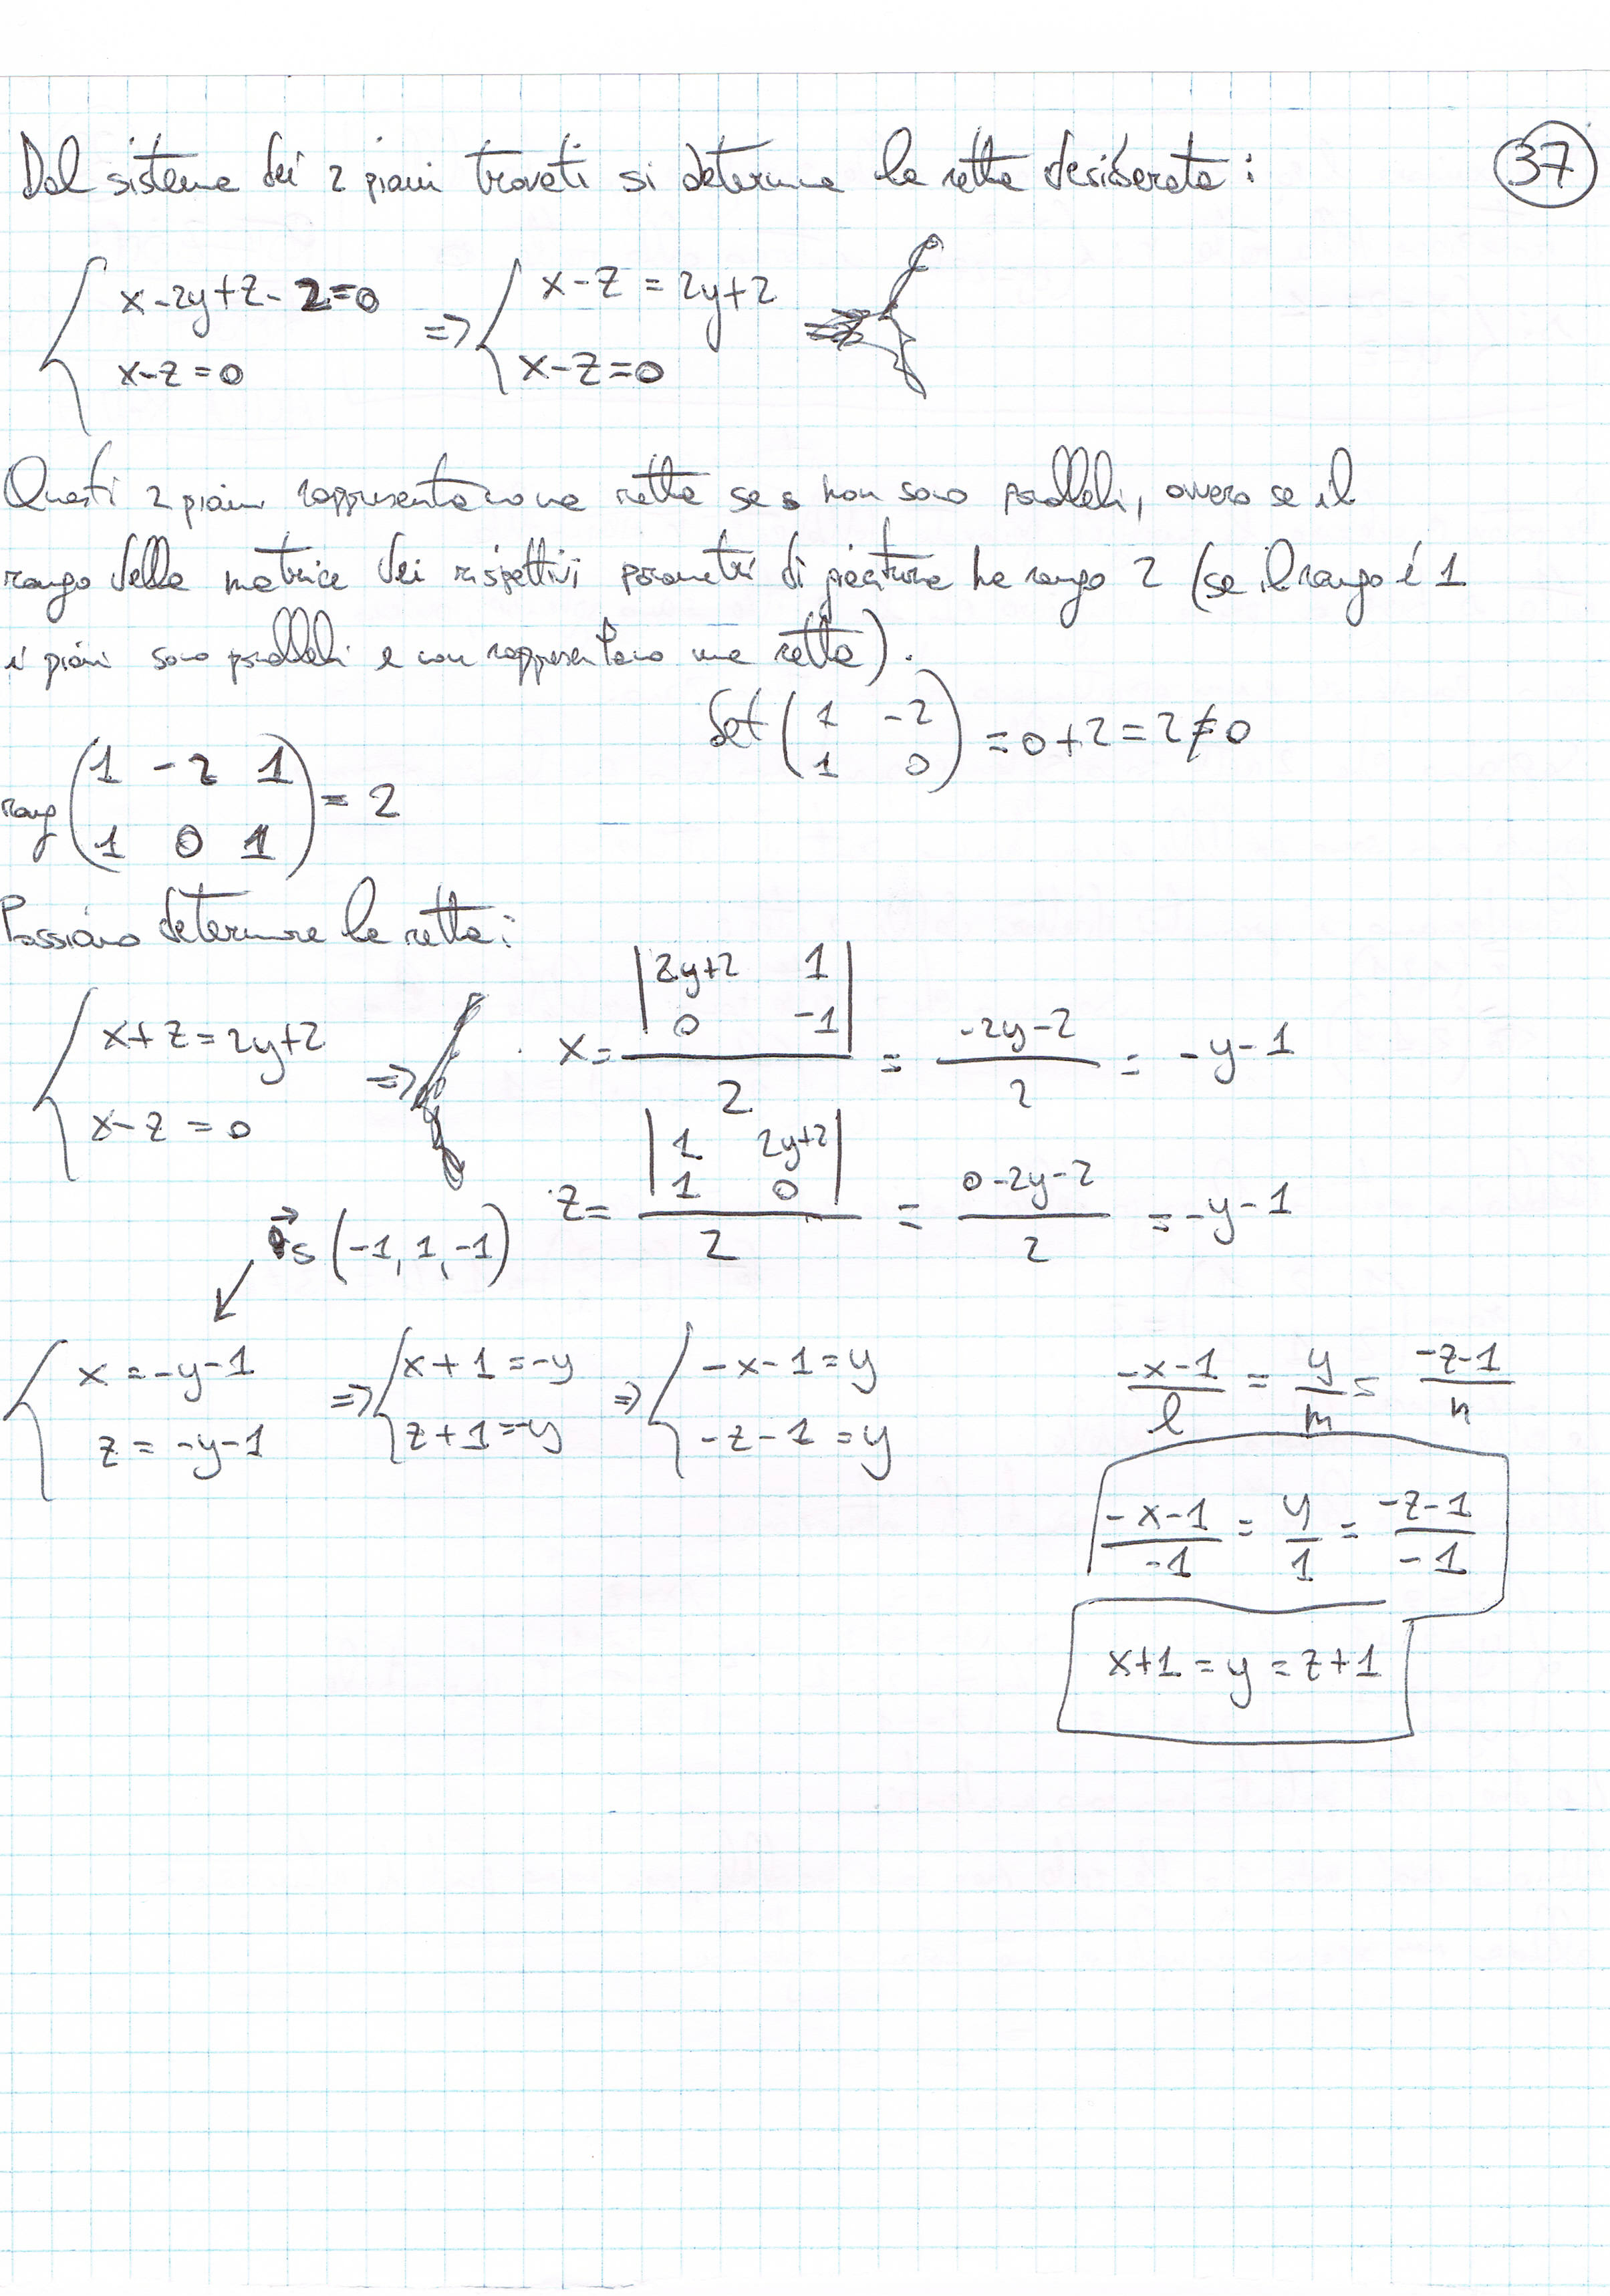 Dal sistema dei 2 piani trovati si determina la retta desiderata: 37
{ x-2y+z-2=0 => { x-z = 2y+2
x-z=0 x-z=0
Questi 2 piani rappresentano una retta se non sono paralleli, ovvero se il
rango della matrice dei rispettivi parametri di giacitura ha rango 2 (se il rango é 1
i piani sono paralleli e non rappresentano una retta).
det ( 1 -2 ) = 0+2=2≠0
( 1 0 )
rang ( 1 -2 1 ) = 2
( 1 0 1 )
Possiamo determinare la retta:
{ x+z=2y+2 => x= | 2y+2 1 | / 2 = -2y-2 / 2 = -y-1
x-z=0 | 0 -1 |
z= | 1 2y+2 | / 2 = 0-2y-2 / 2 = -y-1
| 1 0 |
s (-1, 1, -1)
{ x=-y-1 => { x+1=-y => { -x-1=y
z=-y-1 z+1=-y -z-1=y
-x-1 / l = y / m = -z-1 / n
-x-1 / -1 = y / 1 = -z-1 / -1
x+1=y=z+1